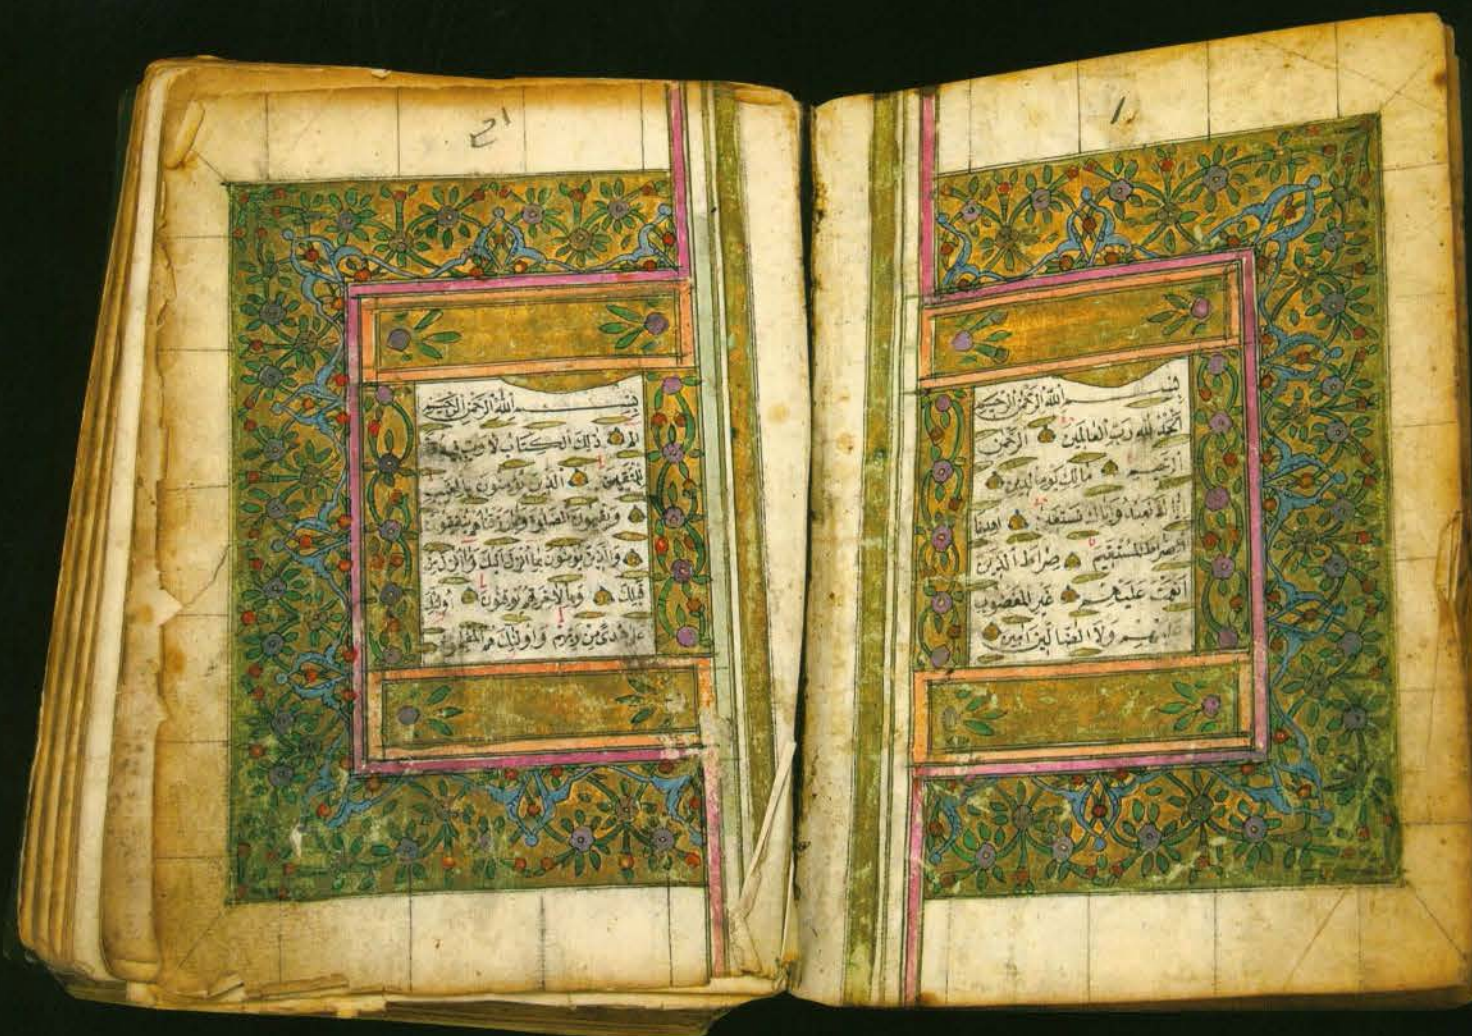 بِسْمِ اللّٰهِ الرَّحْمٰنِ الرَّحِيمِ
اَلْحَمْدُ لِلّٰهِ رَبِّ الْعَالَمِينَ الرَّحْمٰنِ
الرَّحِيمِ مَالِكِ يَوْمِ الدِّينِ
اِيَّاكَ نَعْبُدُ وَاِيَّاكَ نَسْتَعِينُ اِهْدِنَا
الصِّرَاطَ الْمُسْتَقِيمَ صِرَاطَ الَّذِينَ
اَنْعَمْتَ عَلَيْهِمْ غَيْرِ الْمَغْضُوبِ
عَلَيْهِمْ وَلَا الضَّالِّينَ اٰمِين
بِسْمِ اللّٰهِ الرَّحْمٰنِ الرَّحِيمِ
الم ذٰلِكَ الْكِتَابُ لَا رَيْبَ فِيهِ
لِلْمُتَّقِينَ الَّذِينَ يُؤْمِنُونَ بِالْغَيْبِ
وَيُقِيمُونَ الصَّلٰوةَ وَمِمَّا رَزَقْنَاهُمْ يُنْفِقُونَ
وَالَّذِينَ يُؤْمِنُونَ بِمَا اُنْزِلَ اِلَيْكَ وَمَا اُنْزِلَ مِنْ
قَبْلِكَ وَبِالْاٰخِرَةِ هُمْ يُوقِنُونَ اُولٰئِكَ
عَلٰى هُدًى مِنْ رَبِّهِمْ وَاُولٰئِكَ هُمُ الْمُفْلِحُونَ